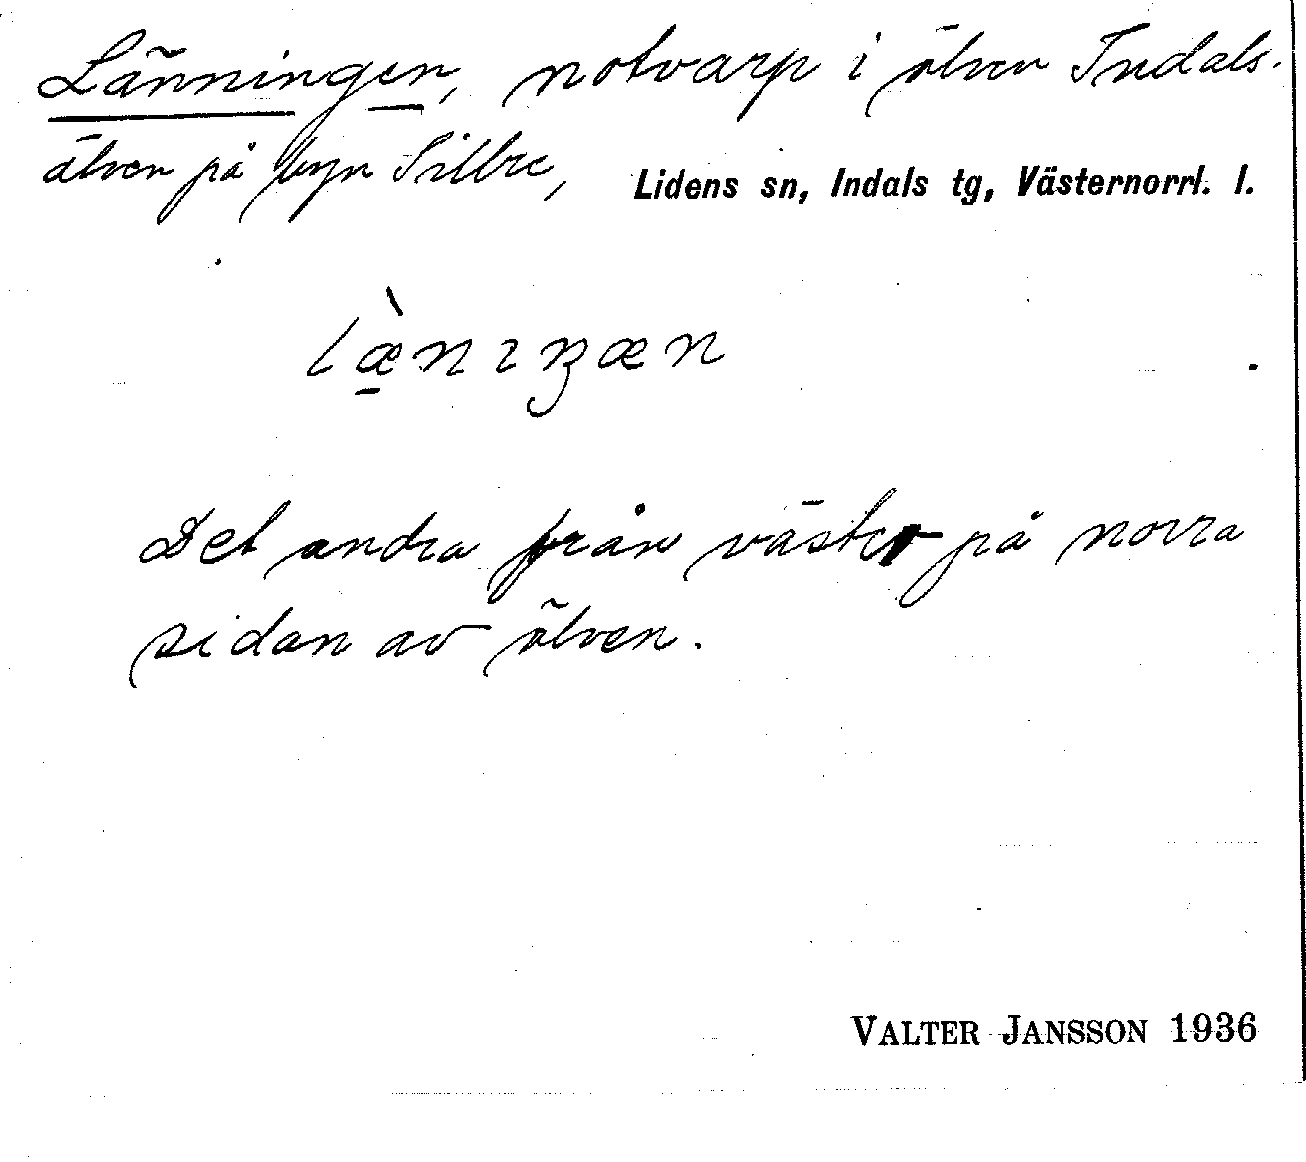 Länningen, notvarp i älven Indals-
älven på byn Sillre, Lidens sn, Indals tg, Västernorrl. l.
læ̠̀nıŋæn
Det andra från väster på norra
sidan av älven.
VALTER JANSSON 1936